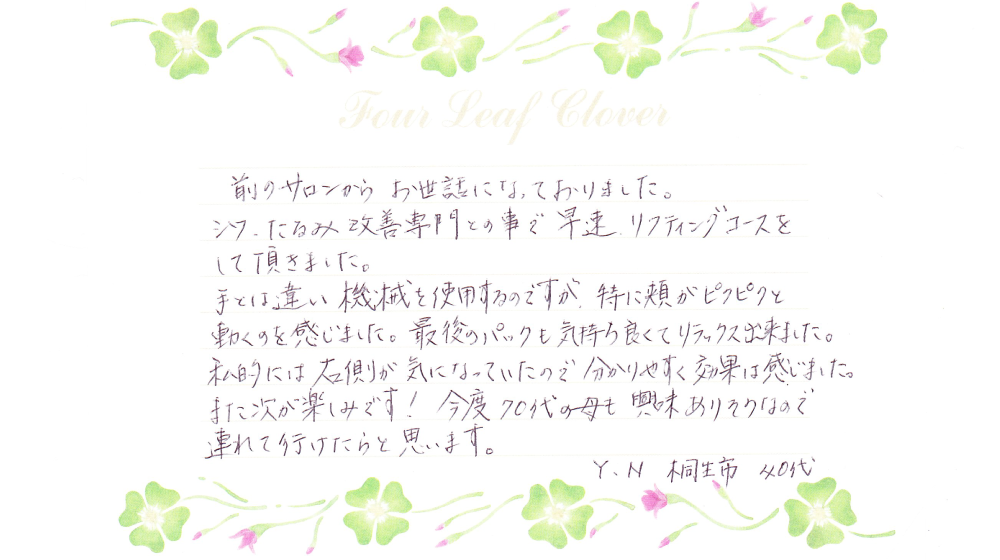 Four Leaf Clover
前のサロンから お世話になっておりました。
シワ、たるみ改善専門との事で 早速、リフティングコースを
して頂きました。
手とは違い 機械を使用するのですが、特に頬がピクピクと
動くのを感じました。最後のパックも気持ち良くてリラックス出来ました。
私的には 右側が 気になっていたので 分かりやすく 効果は感じました。
また次が楽しみです! 今度70代の母も 興味ありそうなので
連れて行けたらと思います。
Y、N 桐生市 40代